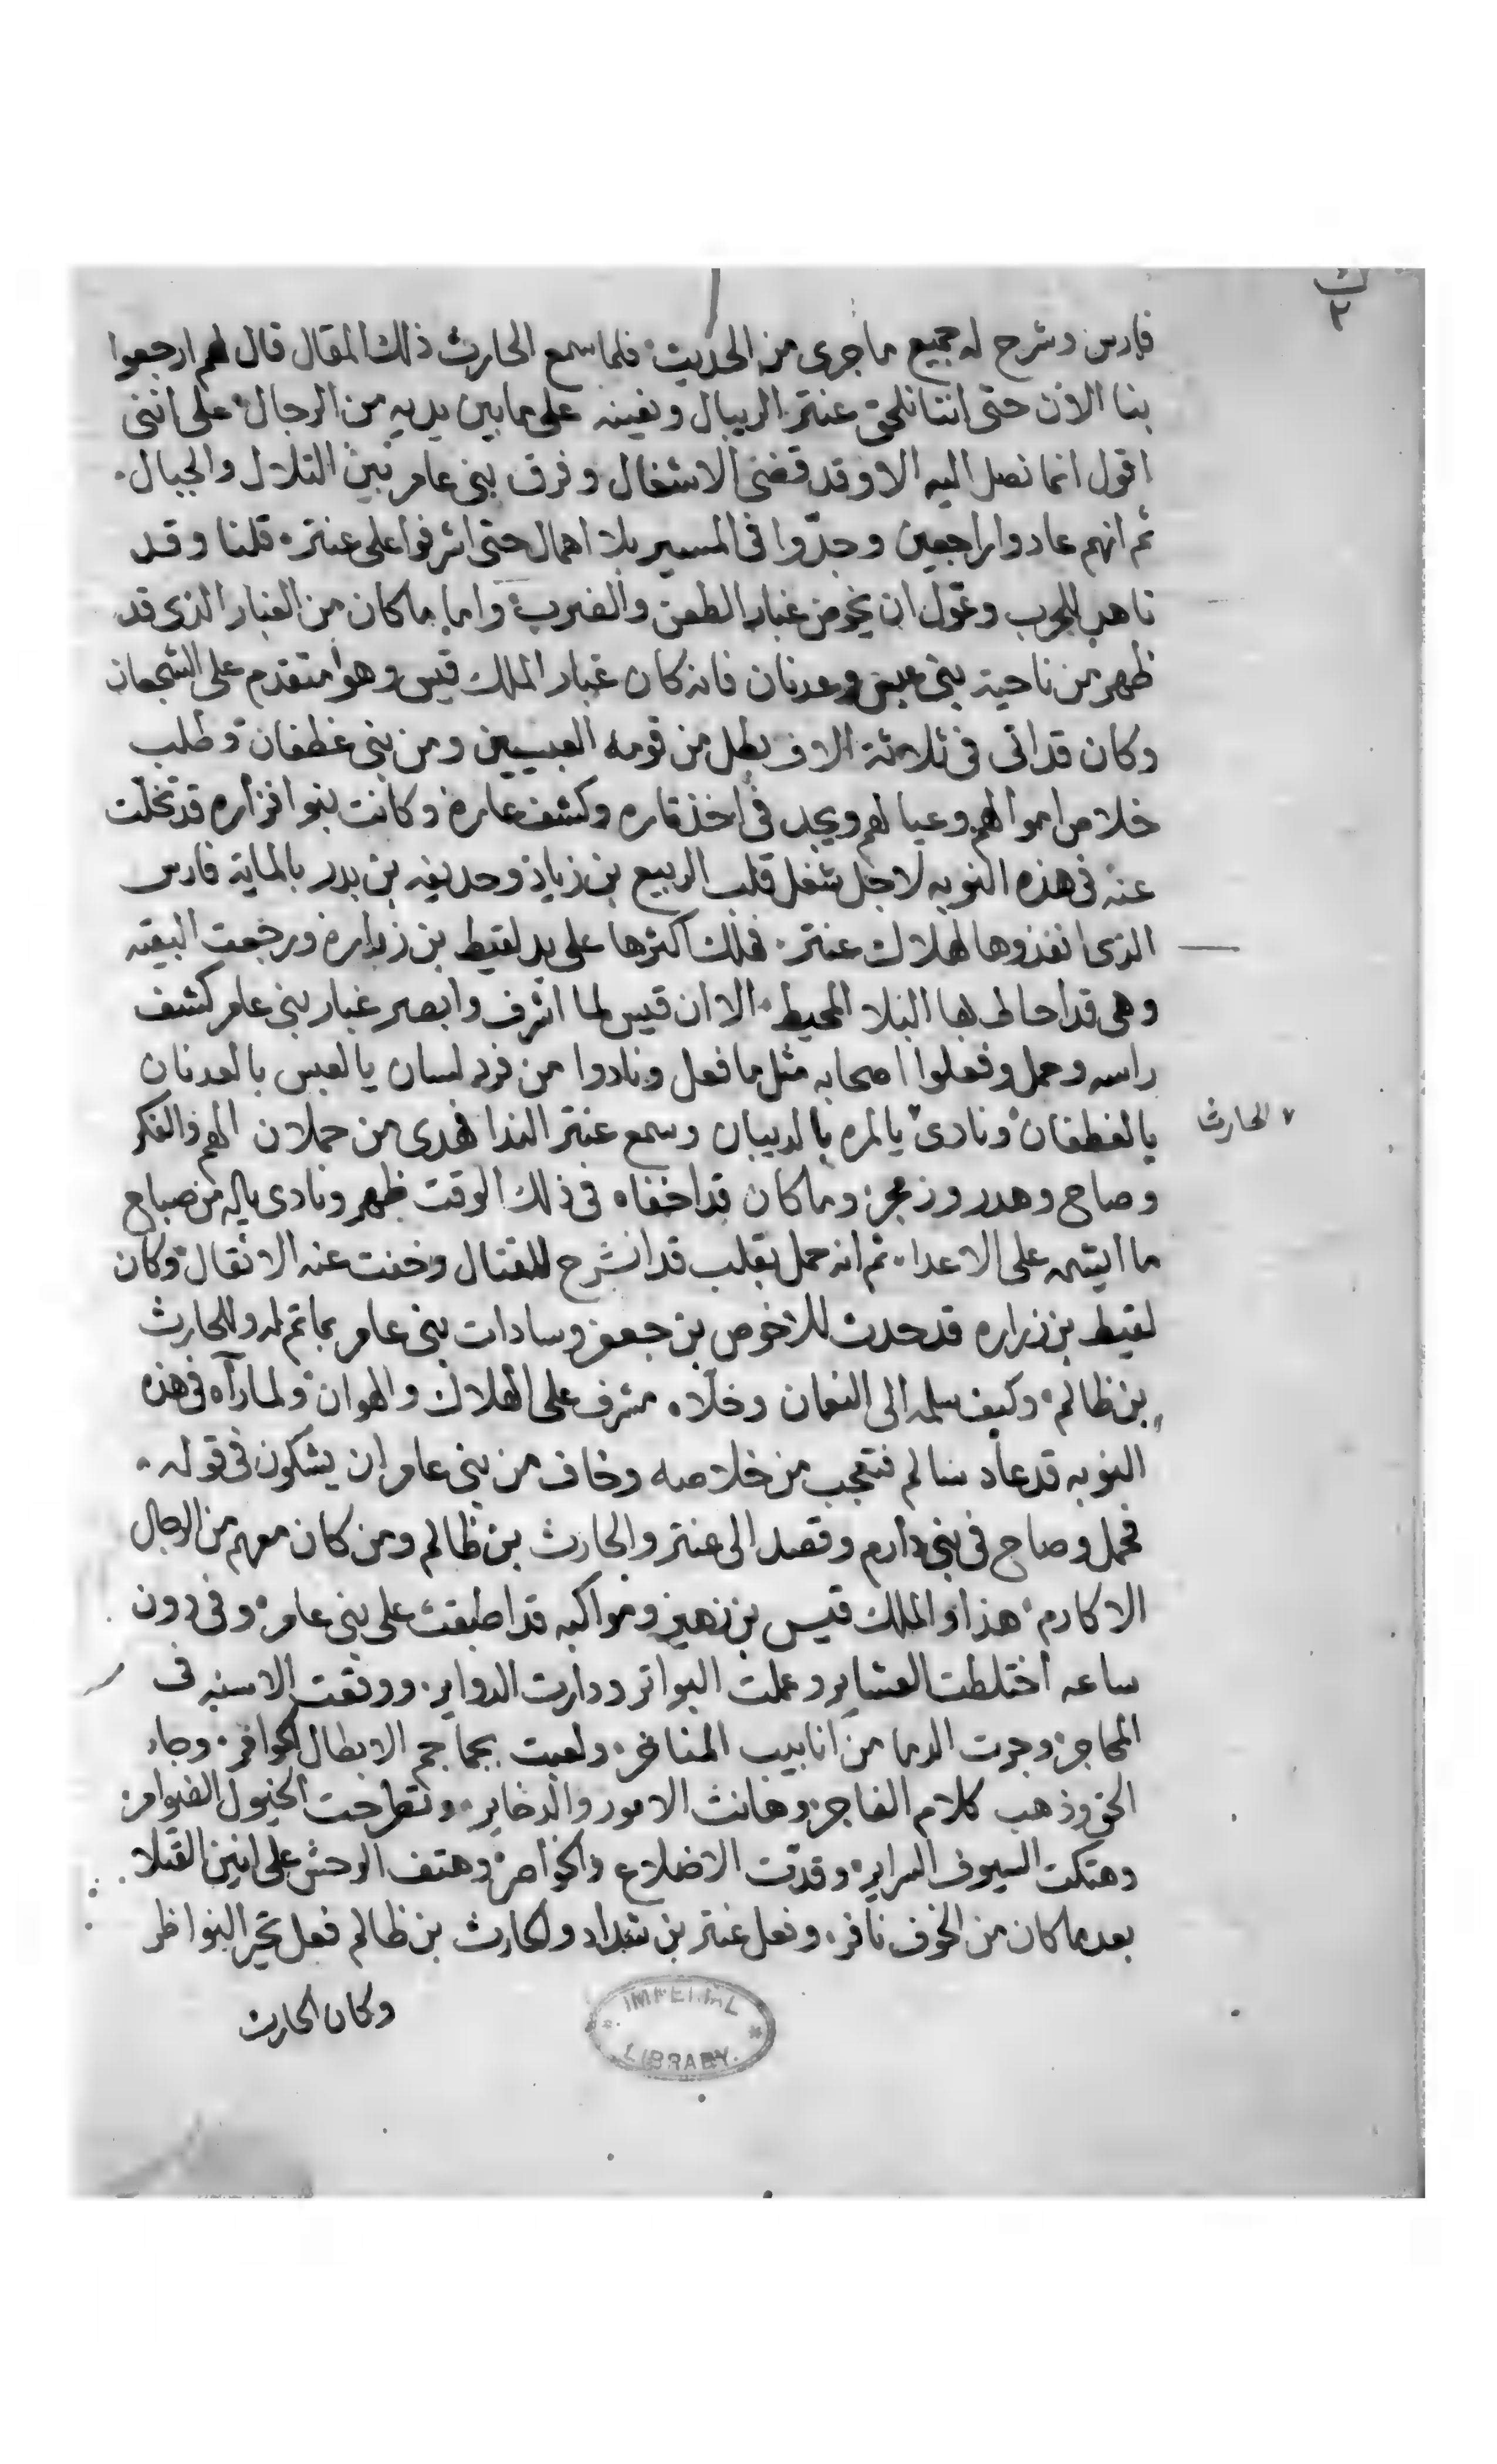 فارس وشرح له جميع ماجرى من الحديث فلما سمع الحارث ذلك المقال قال لهم ارجعوا
بنا الان حتى اننا نلحق عنتر الريبال ونعينه على ما بين يديه من الرجال على انني
اقول انما نصل اليه الا وقد قضى الاشغال وفرق بنى عامر بين التلال والجبال
ثم انهم عادوا راجعين وجدّوا فى المسير بلا اهمال حتى اشرفوا على عنتر قلنا وقد
تاهب للحرب وعوّل ان يخوض غبار الطعن والضرب واما ما كان من الغبار الذى قد
ظهر من ناحية بنى عبس وعدنان فانه كان غبار الملك قيس وهو متقدم على الشجعان
وكان قد اتى فى ثلاثة الاف بطل من قومه العبسيين ومن بنى غطفان وطلب
خلاص اموالهم وعيالهم ويجد فى اخذ تاره وكشف عاره وكانت بنوا فزاره قد تخلت
عنه فى هذه النوبه لاجل شغل قلب الربيع بن زياد وحديفه بن بدر بالماية فارس
الذى انفذوها لهلاك عنتر فهلك اكثرها على يد لقيط بن زراره ورجعت البقيه
وهى قد احاط بها البلا المحيط الا ان قيس لما اشرف وابصر غبار بنى عامر كشف
راسه وحمل وفعلوا اصحابه مثل ما فعل ونادوا من فرد لسان يالعبس يالعدنان
يالغطفان ونادى يالمره يالدبيان وسمع عنتر الندا فهدى من حملان الهم والفكر
الحارث
وصاح وهدر وزمجر وما كان قد اخفاه فى ذلك الوقت ظهر ونادى ياله من صباح
ما ايشمه على الاعدا ثم انه حمل بقلب قد انشرح للقتال وخفت عنه الاثقال وكان
لقيط بن زراره قد حدث للاخوص بن جعفر وسادات بنى عامر بما تم له وللحارث
بن ظالم وكيف سلمه الى النعمان وخلاه مشرف على الهلاك والهوان ولما رآه فى هذه
النوبه قد عاد سالم فتعجب من خلاصه وخاف من بنى عامر ان يشكون فى قوله
فحمل وصاح فى بنى دارم وقصد الى عنتر والحارث بن ظالم ومن كان معهم من الرجال
الاكارم هذا والملك قيس بن زهير ومواكبه قد اطبقت على بنى عامر وفى دون
ساعه اختلطت العشاير وعملت البواتر ودارت الدواير ووقعت الاسنه فى
المحاجر وجرت الدما من انابيب المناخر ولعبت بجماجم الابطال الحوافر وجاء
الحق وذهب كلام الفاجر وهانت الامور والدخاير وتطرحت الخيول الضوامر
وهتكت السيوف السراير وقدّت الاضلاع والخواصر وهتف الوحش على انين القتلا
بعد ما كان من الخوف نافر وفعل عنتر بن شداد والحارث بن ظالم فعل تحير النواظر
وكان الحارث
IMPERIAL
LIBRARY.